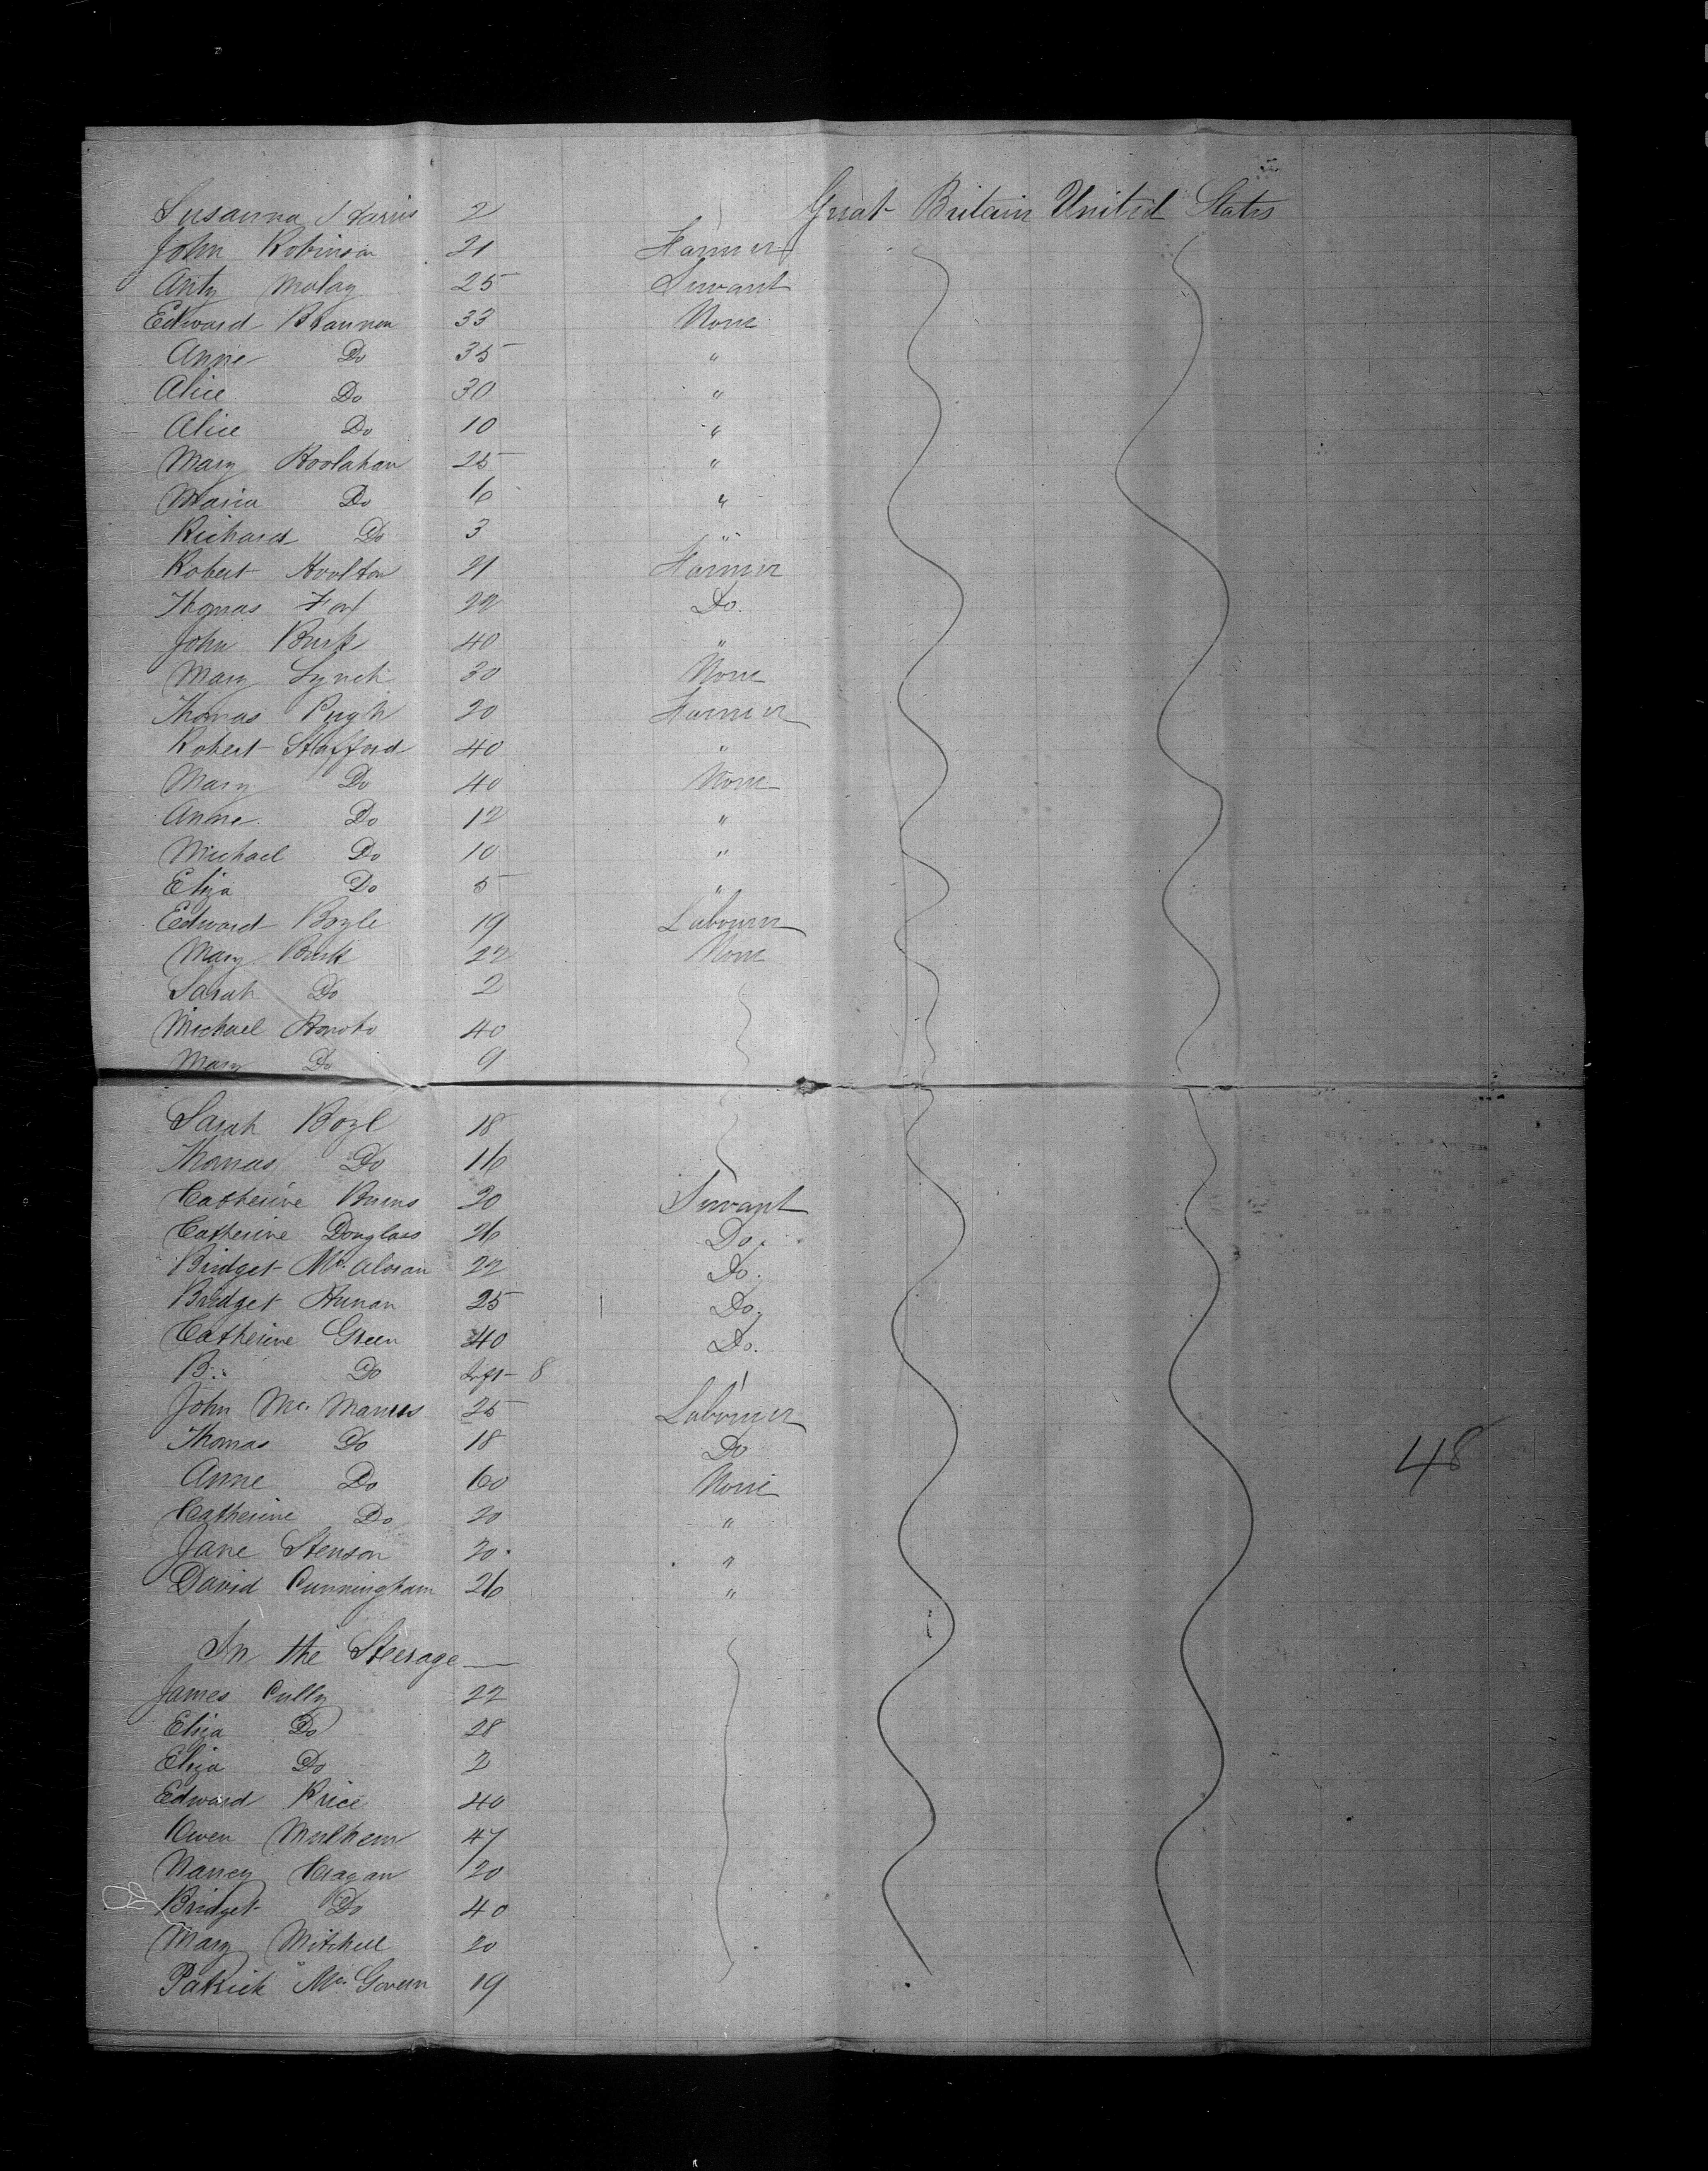 Susanna Harris 2 Great Britain United States
John Robinson 21 Farmer
Anty Molay 25 Servant
Edward Brannen 33 None
Anne Do 35 "
Alice Do 30 "
Alice Do 10 "
Mary Hoolahan 25 "
Maria Do 6 "
Richard Do 3 "
Robert Hoolton 21 Farmer
Thomas Fox 22 Do.
John Burk 40 "
Mary Lynch 30 None
Thomas Pugh 20 Farmer
Robert Stafford 40 "
Mary Do 40 None
Anne Do 12 "
Michael Do 10 "
Eliza Do 5 "
Edward Boyle 19 Labourer
Mary Burk 22 None
Sarah Do 2
Michael 40
Mary Do 9
Sarah Boyl 18
Thomas Do 16
Catherine Burns 20 Servant
Catherine Douglass 26 Do.
Bridget Mc. Aloran 22 Do.
Bridget Hunan 25 Do.
Catherine Green 40 Do.
B. Do Inft 8 "
John Mc. Manus 25 Labourer
Thomas Do 18 Do
Anne Do 60 None
48
Catherine Do 20 "
Jane Stenson 20 "
David Cunningham 26 "
In the Steerage
James Cully 22
Eliza Do 28
Eliza Do 2
Edward Price 40
Owen Mulhern 47
Nancy Cragan 20
Bridget Do 40
Mary Mitchell 20
Patrick Mc. Govern 19